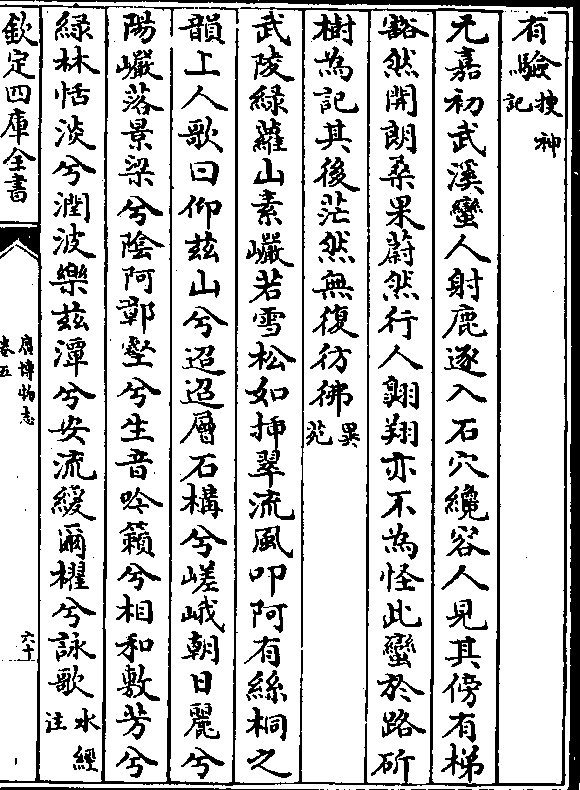 有驗搜神記
元嘉初武溪蠻人射鹿逐入石穴纔容人見其傍有梯
豁然開朗桑果蔚然行人翺翔亦不為怪此蠻於路斫
樹為記其後茫然無復彷彿異苑
武陵綠蘿山素巖若雪松如插翠流風叩阿有絲桐之
韻上人歌曰仰兹山兮迢迢層石構兮嵯峨朝日麗兮
陽巖落景梁兮陰阿鄣壑兮生音吟籟兮相和敷芳兮
綠林恬淡兮潤波樂兹潭兮安流緩爾櫂兮詠歌水經注
欽定四庫全書
廣博物志
卷五
六十